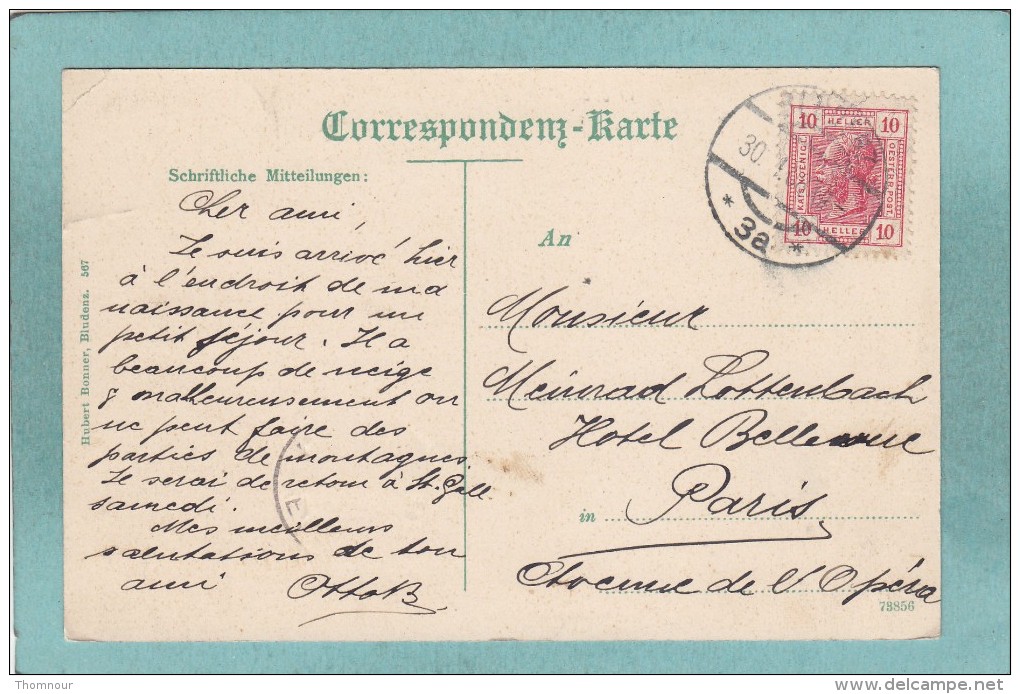 Correspondenz-Karte
Schriftliche Mitteilungen:
Cher ami,
Je suis arrivé hier
à l'endroit de ma
naissance pour un
petit séjour. Il a
beaucoup de neige
& malheureusement on
ne peut faire des
parties de montagnes.
Je serai de retour à St. Gall
samedi.
Mes meilleurs
salutations de ton
ami OttoB.
Hubert Bonner, Bludenz. 567
10 HELLER 10
KAIS. KOENIGL.
OESTERR. POST.
10 HELLER 10
30.
* 3a *
An
Monsieur
Meinrad Lottenbach
Hotel Bellevue
in Paris
Avenue de l'Opéra
73856
Thomnour
www.delcampe.net